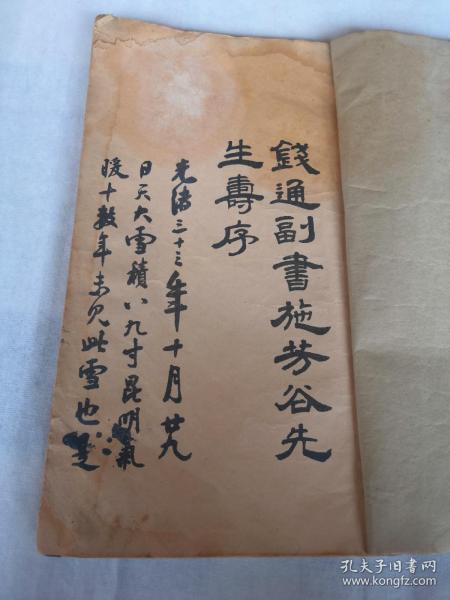 錢通副書施芳谷先
生壽序
光緒三十三年十月廿九
日天大雪積八九寸昆明氣
暖十數年未見此雪也
孔夫子旧书网
www.kongfz.com